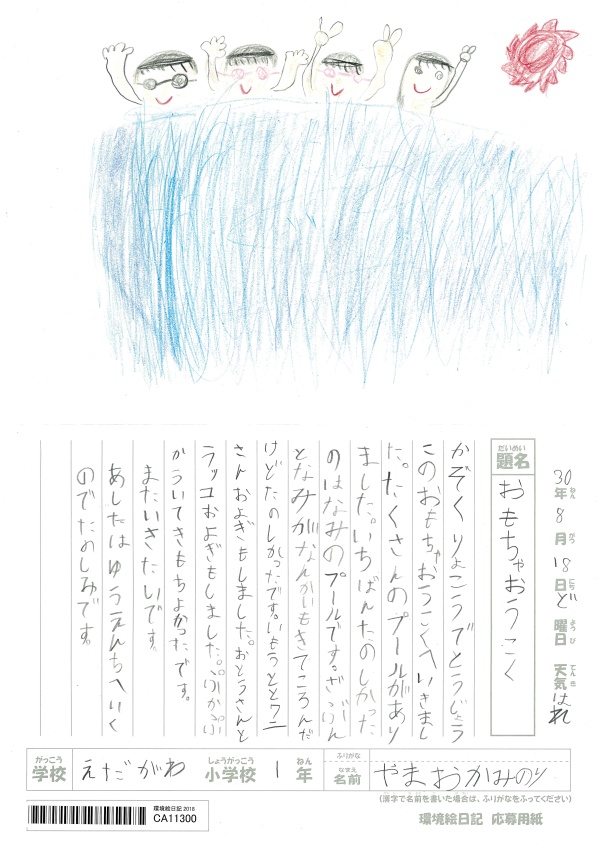 30年ねん8月がつ18日にちど曜日ようび 天気てんきはれ
題名だいめい おもちゃおうこく
かぞくりょこうでとうじょう
このおもちゃおうこくへいきまし
た。たくさんのプールがあり
ました。いちばんたのしかった
のはなみのプールです。ざぶん
となみがなんかいもきてころんだ
けどたのしかったです。いもうととワニ
さんおよぎもしました。おとうさんと
ラッコおよぎもしました。ぷかぷ
かういてきもちよかったです。
またいきたいです。
あしたはゆうえんちへいく
のでたのしみです。
学校がっこう えだがわ 小学校しょうがっこう 1年ねん ふりがな 名前なまえ やまおかみのり
(漢字で名前を書いた場合は、ふりがなをふってください)
環境絵日記 応募用紙
環境絵日記 2018
CA11300